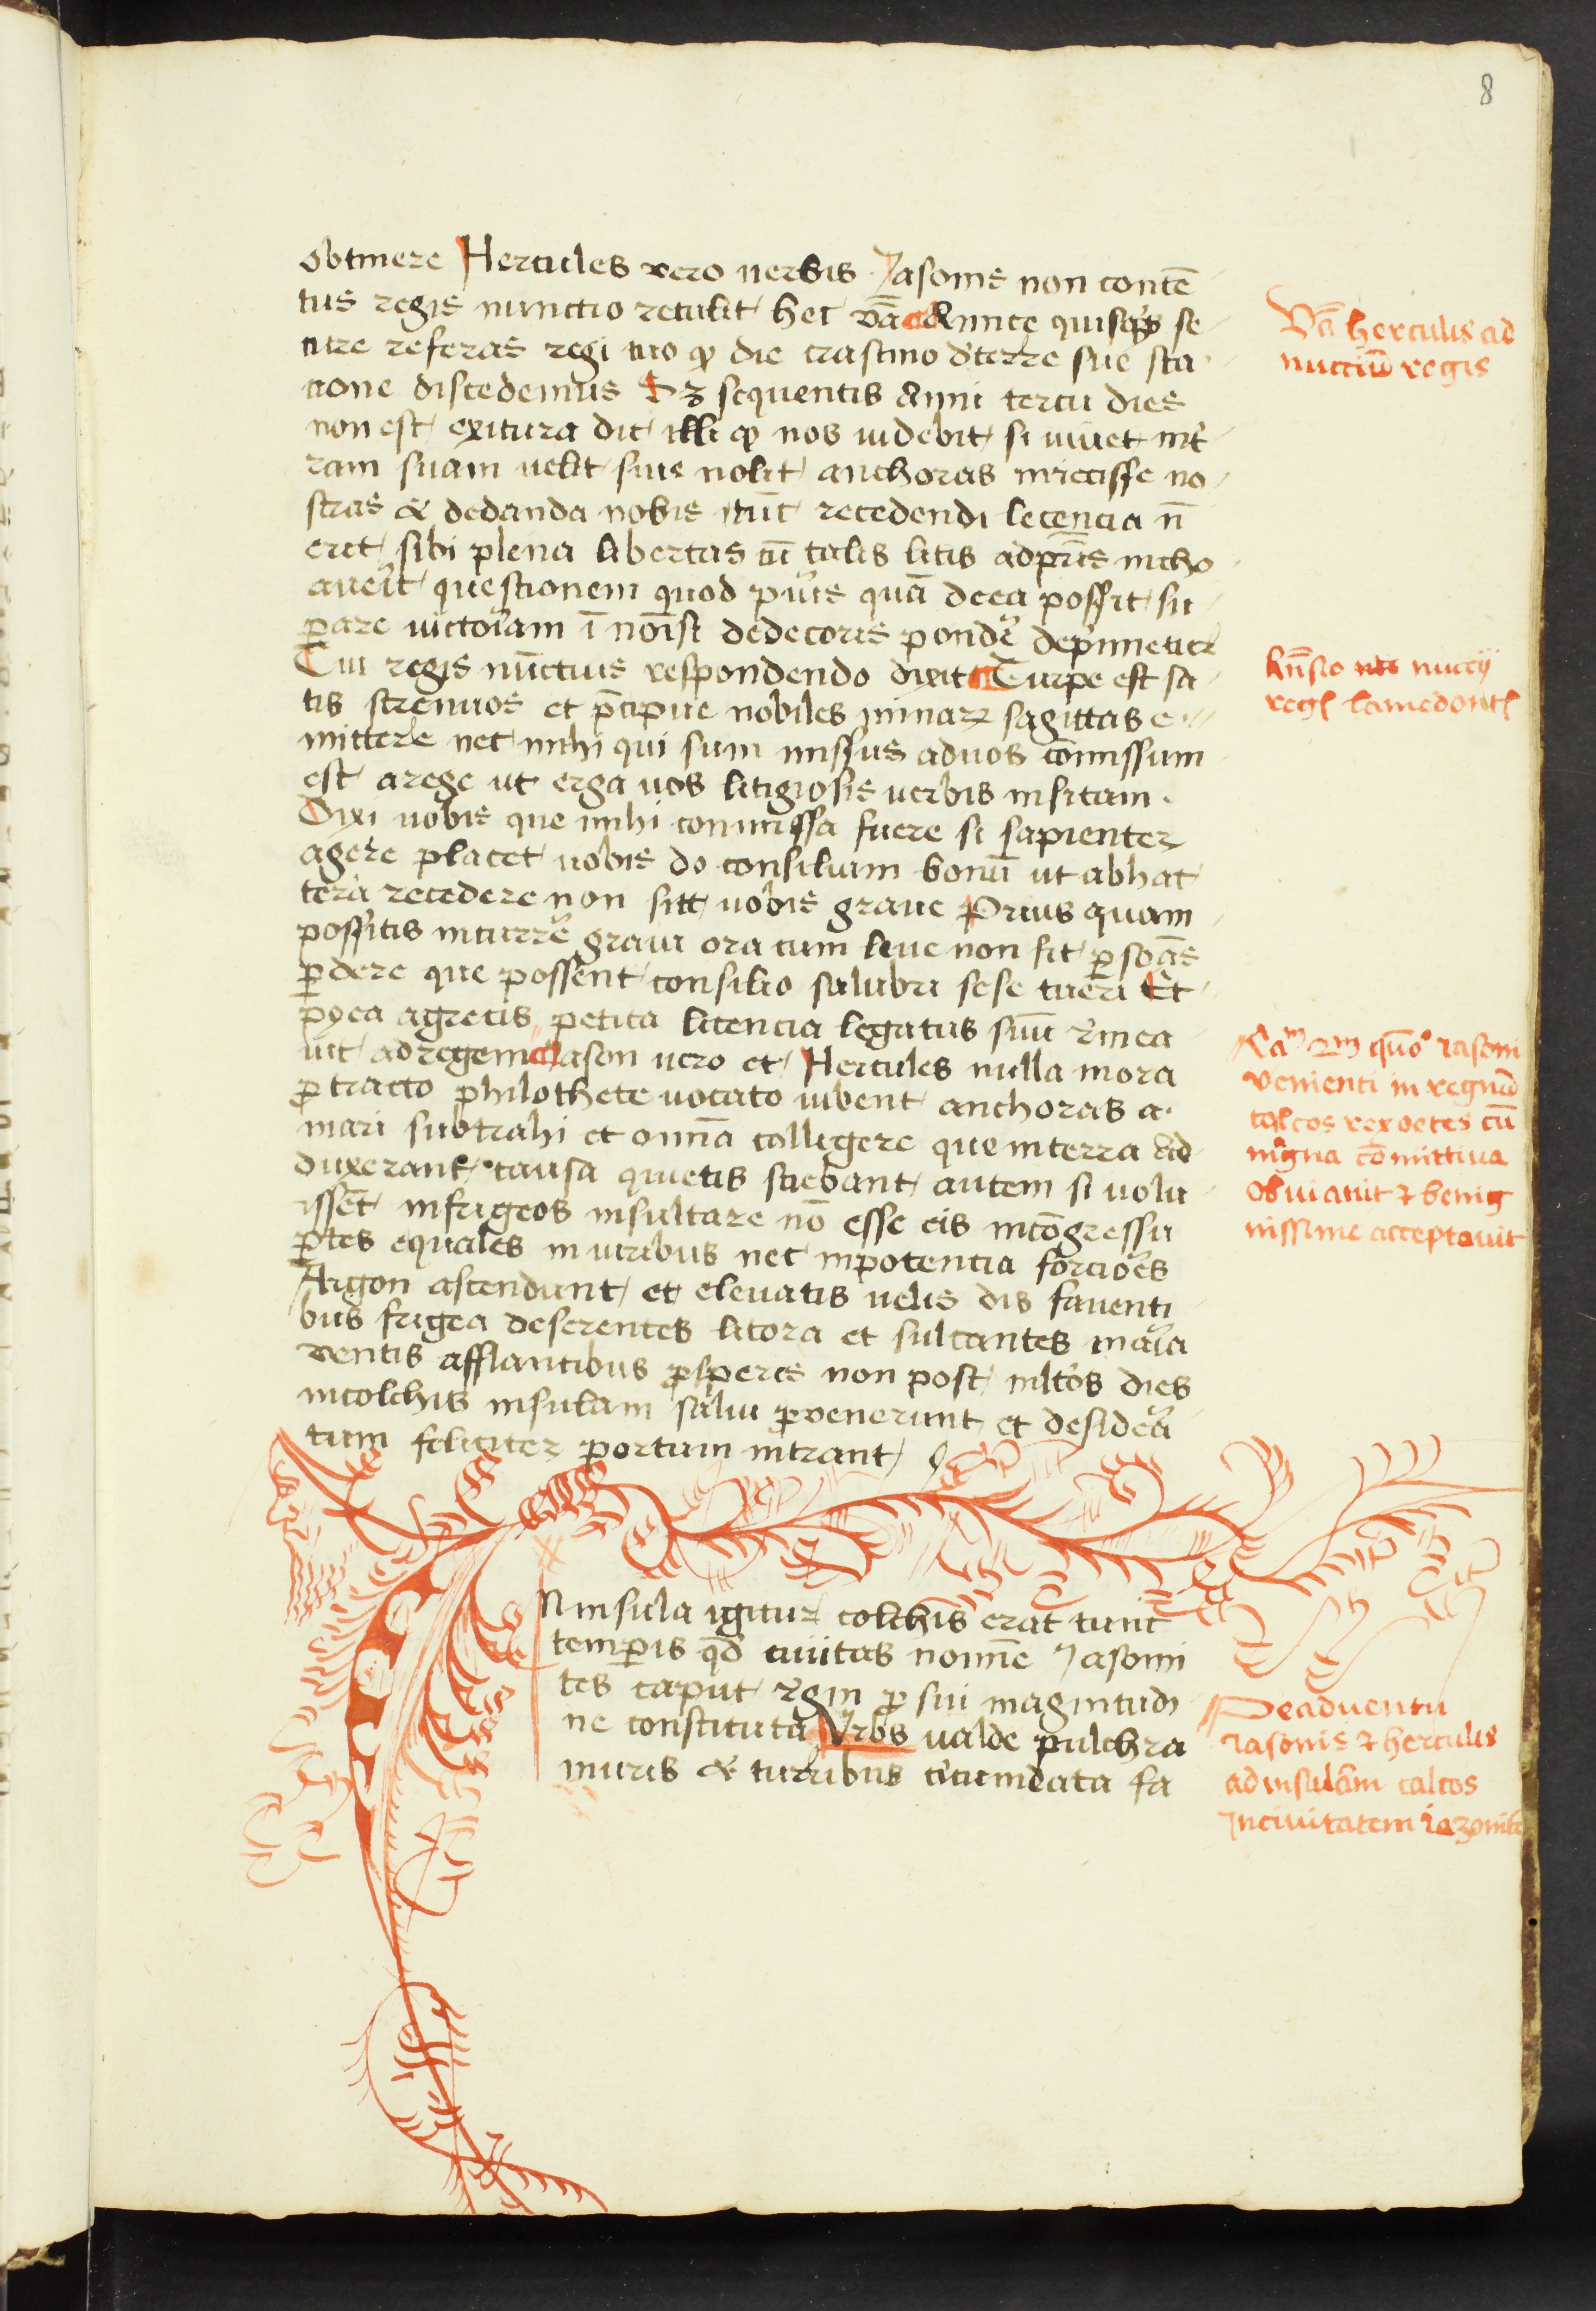 8
obtinere Hercules vero uerbis Jasonis non contē
tus regis nunctio retulit hec vā Nuncẹ quisq̇s se
cure referas regi tuo qꝫ die crastino d'terre sue sta
cione discedemus Sꝫ sequentis Anni tercii dies
non est exitura dic illi qꝫ nos uidebit si uiuet int̉
ram suam uelit siue nolit anchoras iniecisse no
stras & dedanda nobis tūc recedendi lecencia n̄
erit sibi plena libertas cū talis litis ad p̄ns incho
auerit questionem quod pus quā decea possit su
ꝑare uictoriam ī noīsi dedecoris ponde dep̉imetur
Cui regis nūctius respondendo dixit Turpe est sa
tis strenuos et p̄cipue nobiles minarꝝ sagittas e
mittere nec mihi qui sum missus ad uos cōmissum
est a rege ut erga uos litigiosis uerbis insitam
Dixi uobis que mihi commissa fuere si sapienter
agere placet uobis do consilium bonū ut ab hac
terā recedere non sitt uobis graue Prius quam
possitis incurrē grauiora cum leue non sit ꝑsonās
ꝑdere que possent consilio salubri sese tueri Et
pꝰea a grecis petita licencia legatus suū r̉mea
uit ad regem Jason uero et Hercules nulla mora
ꝓtracto philothete uocato iubent anchoras a
mari subtrahi et omnā colligere que in terra ad
duxerant causa quietis sciebant autem si uolu
issēt in frigeos insultare nō esse eis in cōgressu
ꝑtes equales in uiribus nec in potencia forciōes
Argon ascendunt et eleuatis uelis dis fauenti
bus frigea deserentes litora et sulcantes mar̉ia
ventis afflantibus ꝓsperis non post mltos dies
in colchis insulam salui ꝑvenerunt et desider̉a
tum feliciter portum intrant
N insula igitur colchis erat tunc
temꝑis qd̄ ciuitas nomīe Jasoni
tes caput r̉gni ꝓ sui magnitudi
ne constituta Vrbs ualde pulchra
muris & turribus circumdata fa
Vā herculis ad
nucciū regis
Rn̄sio nuccij
regꝭ lamedontꝭ
venienti in regnū
colcos rex oetes cū
mgna cōmittiua
obuiauit ⁊ benig
nissime acceptauit
De aduentu
iasonis ⁊ herculis
ad insulam calcos
In ciuitatem iazonite